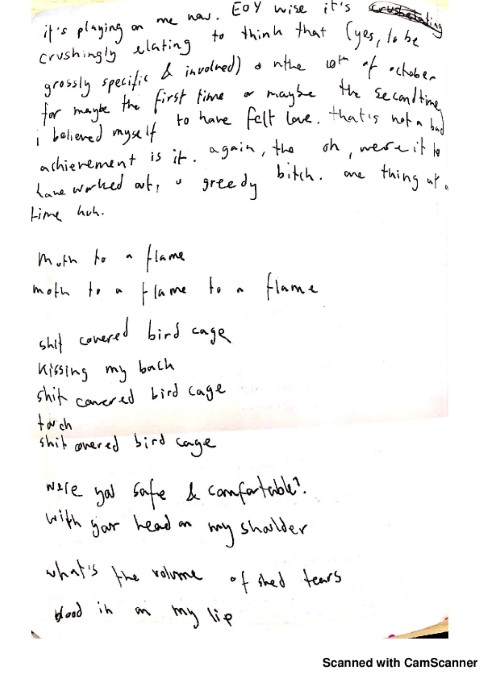 it's playing on me now. EOY wise it's
crushingly elating to think that (yes, to be
grossly specific & involved) on the 10th of october
for maybe the first time or maybe the second time
i believed myself to have felt love. that's not a bad
achievement is it. again, the oh, were it to
have worked out, u greedy bitch. one thing at a
time huh.
moth to a flame
moth to a flame to a flame
shit covered bird cage
Kissing my back
shit covered bird cage
torch
shit covered bird cage
were you safe & comfortable?
with your head on my shoulder
what's the volume of shed tears
blood in on my lip
Scanned with CamScanner